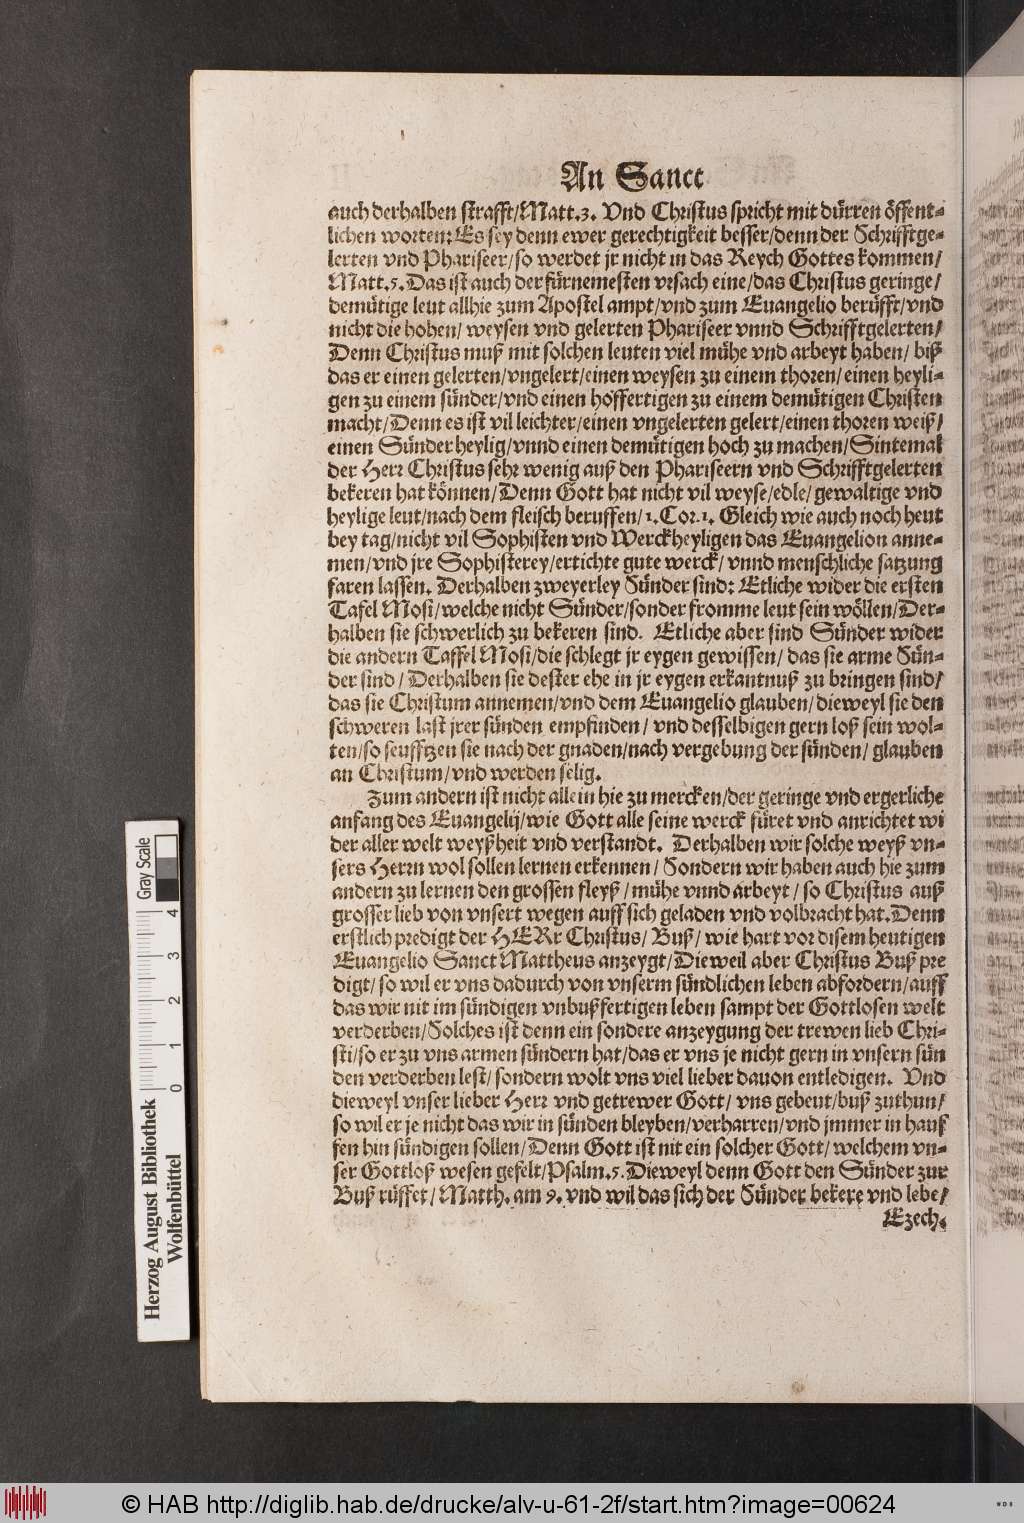 An Sanct
auch derhalben strafft/Matt.3. Vnd Christus spricht mit dürren öffent-
lichen worten: Es sey denn ewer gerechtigkeit besser/denn der Schrifftge-
lerten vnd Phariseer/so werdet jr nicht in das Reych Gottes kommen/
Matt.5. Das ist auch der fürnemesten vrsach eine/das Christus geringe/
demütige leut allhie zum Apostel ampt/vnd zum Euangelio berüfft/vnd
nicht die hohen/ weysen vnd gelerten Phariseer vnnd Schrifftgelerten/
Denn Christus muß mit solchen leuten viel mühe vnd arbeyt haben/ biß
das er einen gelerten/vngelert/einen weysen zu einem thoren/einen heyli-
gen zu einem sünder/vnd einen hoffertigen zu einem demütigen Christen
macht/Denn es ist vil leichter/einen vngelerten gelert/einen thoren weiß/
einen Sünder heylig/vnnd einen demütigen hoch zu machen/Sintemal
der Herr Christus sehr wenig auß den Phariseern vnd Schrifftgelerten
bekeren hat können/Denn Gott hat nicht vil weyse/edle/gewaltige vnd
heylige leut/nach dem fleisch beruffen/1.Cor.1. Gleich wie auch noch heut
bey tag/nicht vil Sophisten vnd Werckheyligen das Euangelion anne-
men/vnd jre Sophisterey/ertichte gute werck/ vnnd menschliche satzung
faren lassen. Derhalben zweyerley Sünder sind: Etliche wider die ersten
Tafel Mosi/welche nicht Sünder/sonder fromme leut sein wöllen/Der-
halben sie schwerlich zu bekeren sind. Etliche aber sind Sünder wider
die andern Taffel Mosi/die schlegt jr eygen gewissen/ das sie arme Sün-
der sind/ Derhalben sie dester ehe in jr eygen erkantnuß zu bringen sind/
das sie Christum annemen/vnd dem Euangelio glauben/dieweyl sie den
schweren last jrer sünden empfinden/ vnd desselbigen gern loß sein wol-
ten/so seufftzen sie nach der gnaden/nach vergebung der sünden/ glauben
an Christum/vnd werden selig.
Zum andern ist nicht allein hie zu mercken/der geringe vnd ergerliche
anfang des Euangelij/wie Gott alle seine werck füret vnd anrichtet wi
der aller welt weyßheit vnd verstandt. Derhalben wir solche weyß vn-
sers Herrn wol sollen lernen erkennen/ Sondern wir haben auch hie zum
andern zu lernen den grossen fleyß/ mühe vnnd arbeyt/ so Christus auß
grosser lieb von vnsert wegen auff sich geladen vnd volbracht hat. Denn
erstlich predigt der HERr Christus/ Buß/ wie hart vor disem heutigen
Euangelio Sanct Mattheus anzeygt/Dieweil aber Christus Buß pre
digt/ so wil er vns dadurch von vnserm sündlichen leben abfordern/auff
das wir nit im sündigen vnbußfertigen leben sampt der Gottlosen welt
verderben/Solches ist denn ein sondere anzeygung der trewen lieb Chri-
sti/so er zu vns armen sündern hat/das er vns je nicht gern in vnsern sün
den verderben lest/ sondern wolt vns viel lieber dauon entledigen. Vnd
dieweyl vnser lieber Herr vnd getrewer Gott/ vns gebeut/buß zuthun/
so wil er je nicht das wir in sünden bleyben/verharren/vnd jmmer in hauf
fen hin sündigen sollen/Denn Gott ist nit ein solcher Gott/ welchem vn-
ser Gottloß wesen gefelt/Psalm.5. Dieweyl denn Gott den Sünder zur
Buß rüffet/ Matth. am 9. vnd wil das sich der Sünder bekere vnd lebe/
Ezech.
Herzog August Bibliothek
Wolfenbüttel
0 1 2 3 4
Gray Scale
© HAB http://diglib.hab.de/drucke/alv-u-61-2f/start.htm?image=00624